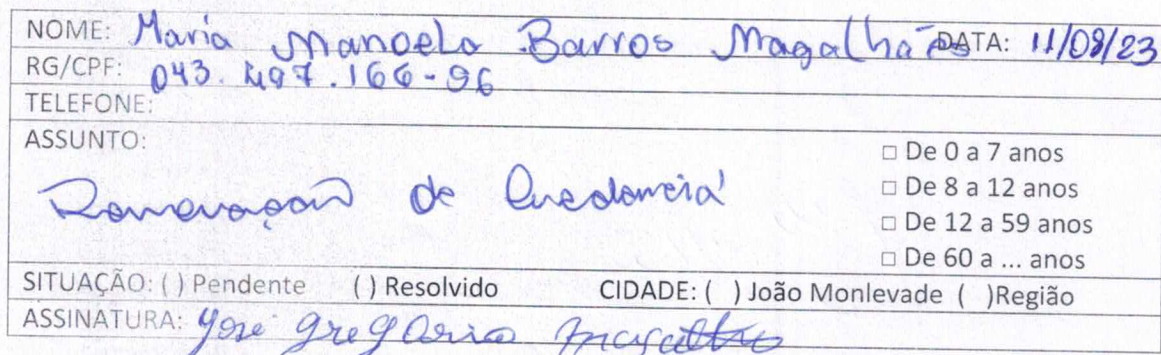 NOME: Maria Manoela Barros Magalhães DATA: 11/08/23
RG/CPF: 043.497.166-96
TELEFONE:
ASSUNTO:
□ De 0 a 7 anos
□ De 8 a 12 anos
de
□ De 12 a 59 anos
□ De 60 a ... anos
SITUAÇÃO: ( ) Pendente ( ) Resolvido CIDADE: ( ) João Monlevade ( )Região
ASSINATURA: José Gregório